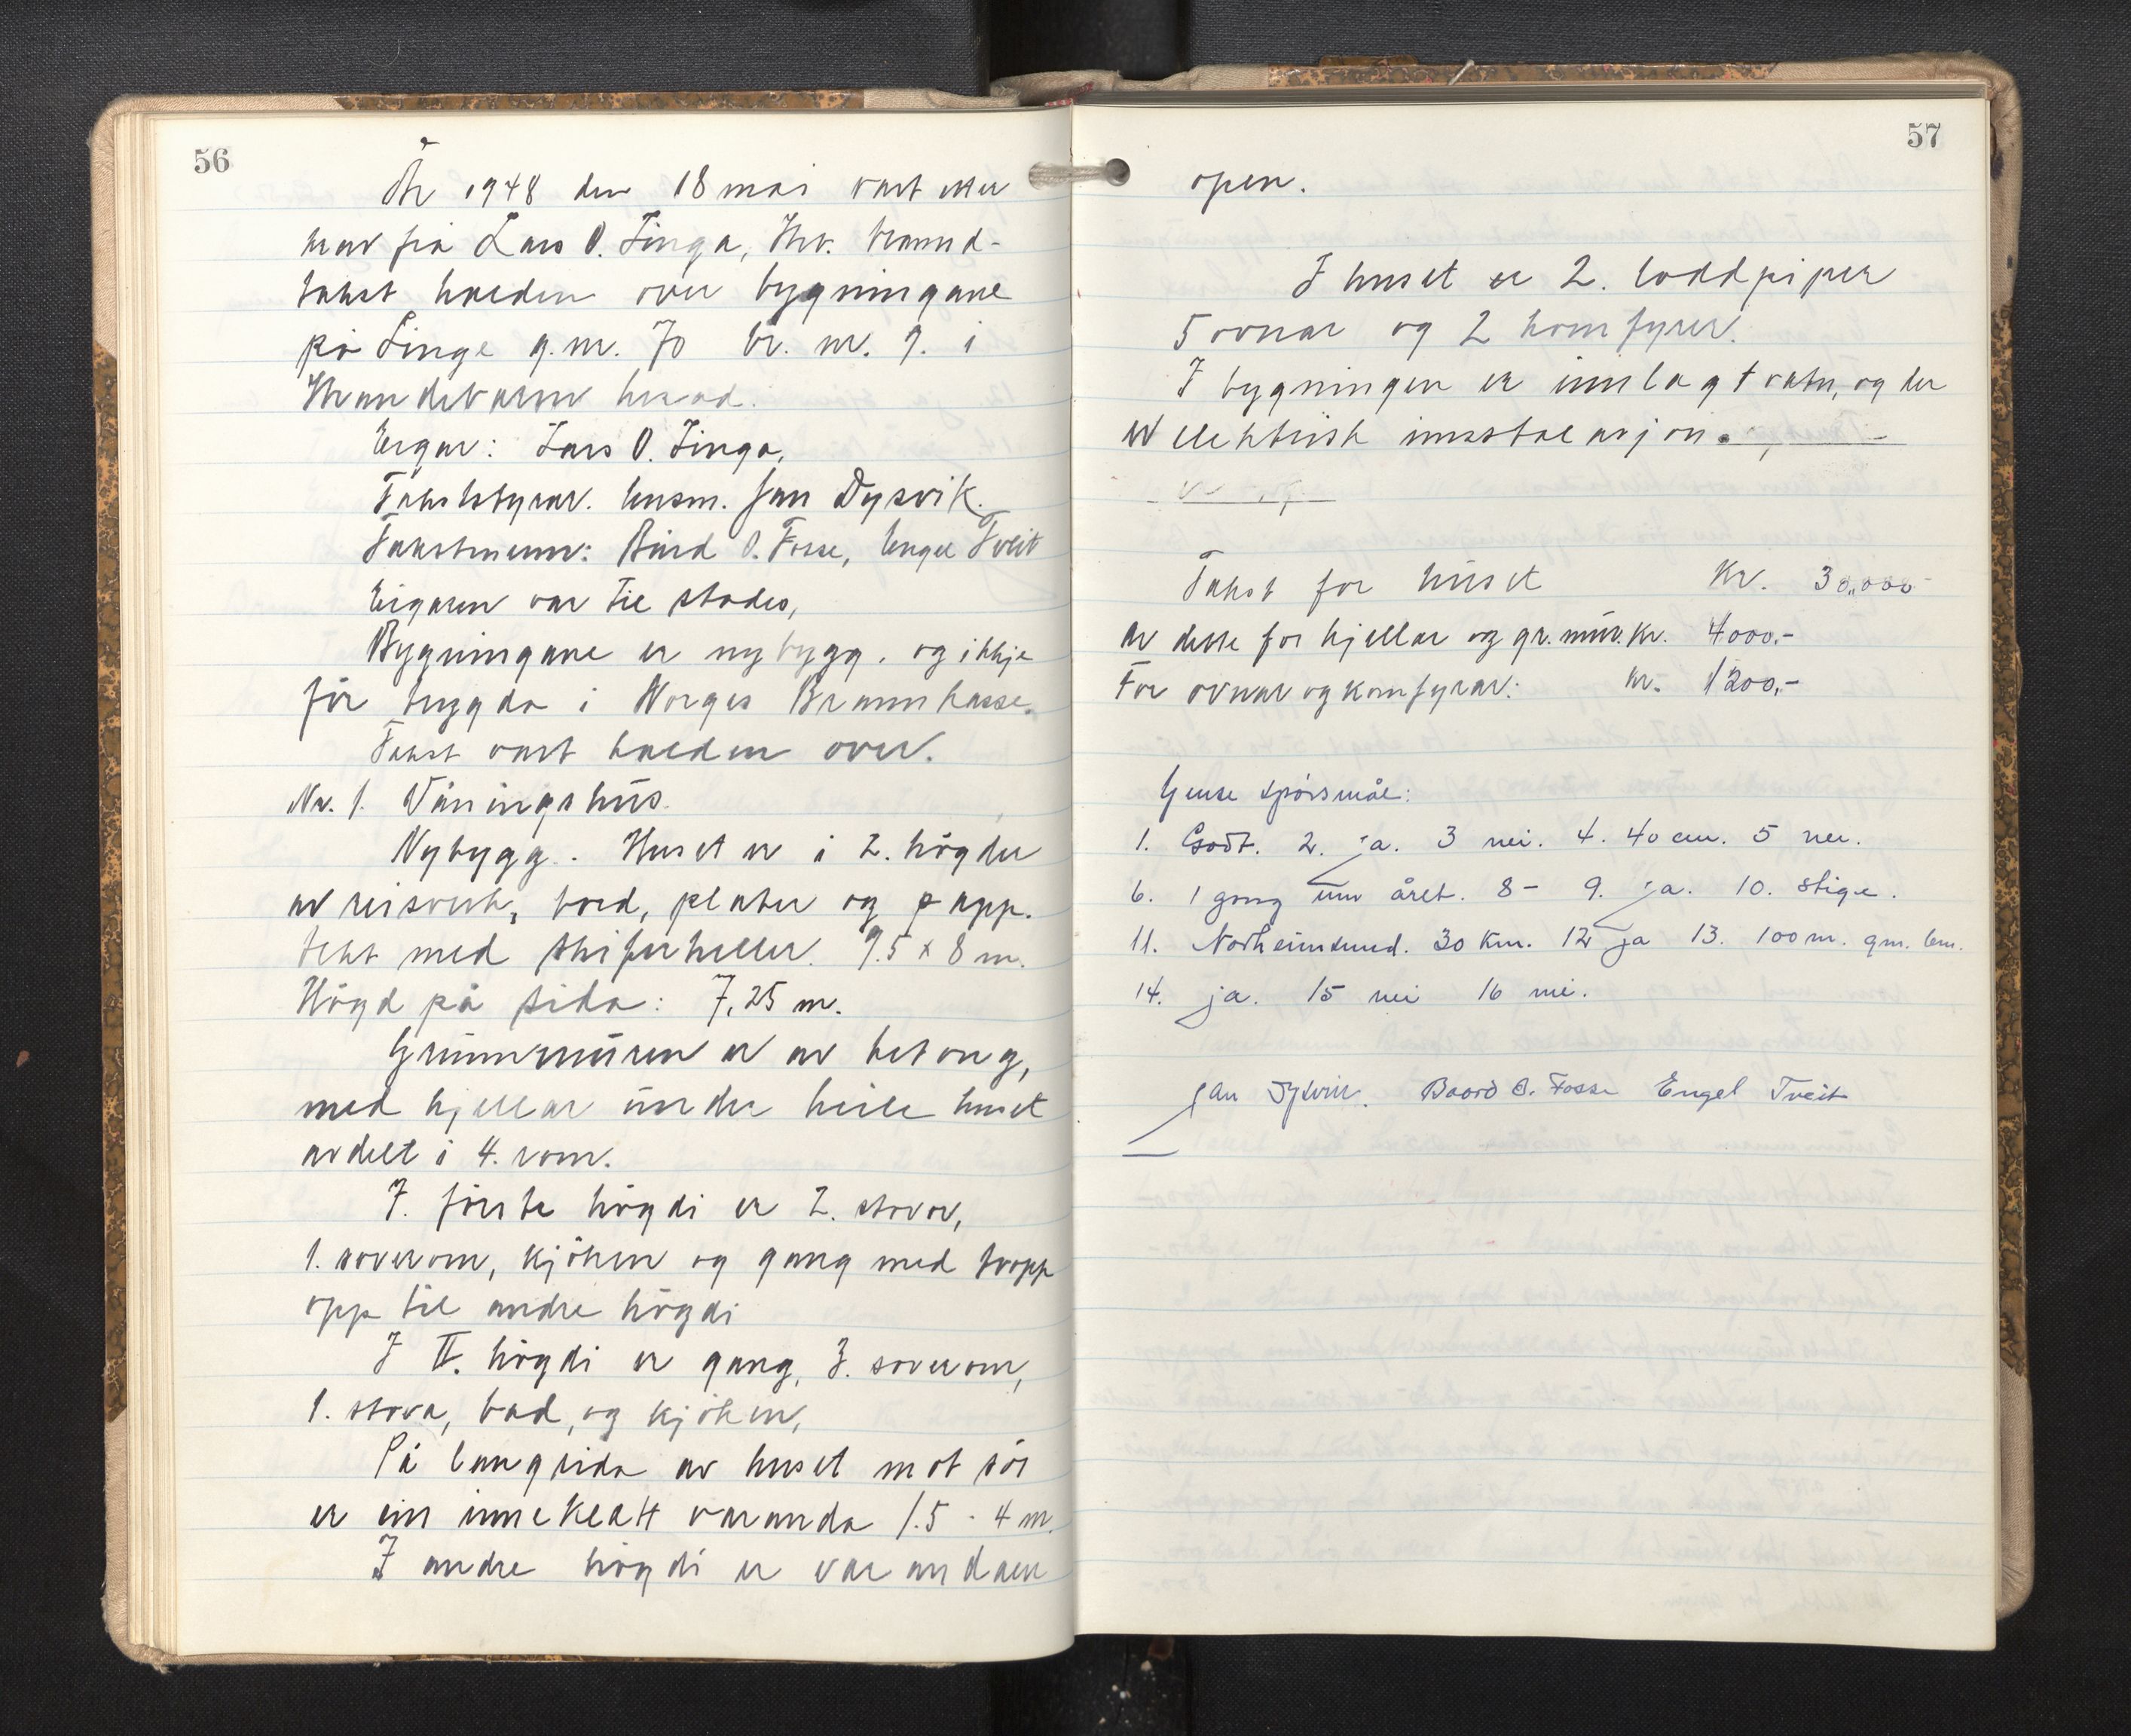 56
År 1948 den 18 mai vart etter
krav frå Lars O. Linga, Str. brannd-
takst halden over bygningane
på Linge g.nr. 70 br. nr. 9. i
Strandebarm herad.
Eigar: Lars O. Linga,
Takststyrar. lensm. Jan Dysvik.
Takstmenn: Bård O. Fosse, Engel Tveit
Eigaren var til stades,
Bygningane er nybygg. og ikkje
för trygda i Norges Brannkasse.
Takst vart halden over.
Nr. 1. Våningshus.
Nybygg. Huset er i 2. högder
av reisverk, bord, plater og papp.
tekt med skiferheller. 9.5 x 8 m.
Högd på sida: 7,25 m.
Grunnmuren er av betong,
med kjellar under heile huset
avdelt i 4. rom.
I förste högdi er 2. stovor,
1. soverom, kjöken og gang med tropp
opp til andre högdi
I II. högdi er gang, 3. soverom,
1. stova, bad, og kjöken,
På langsida av huset mot sör
er ein innekledtt varanda 1.5 - 4 m.
I andre högdi er varandaen
57
open.
I huset er 2. loddpiper
5 ovnar og 2 komfyrer.
I bygningen er innlagt vatn, og der
er elektrisk innstalasjon.
Takst for huset Kr. 30,000-
Av dette for kjellar og gr.mur. Kr. 4000.-
For ovnar og komfyrar: kr. 1200,-
Ymse spörsmål:
1. Godt. 2. ja. 3 nei. 4. 40 cm. 5 nei.
6. 1 gong um året. 8- 9. ja. 10. Stige.
11. Norheimsund. 30 km. 12 ja 13. 100 m. gm. lem.
14. ja. 15 nei 16 nei.
Jan Dysvik. Baard O. Fosse Engel Tveit